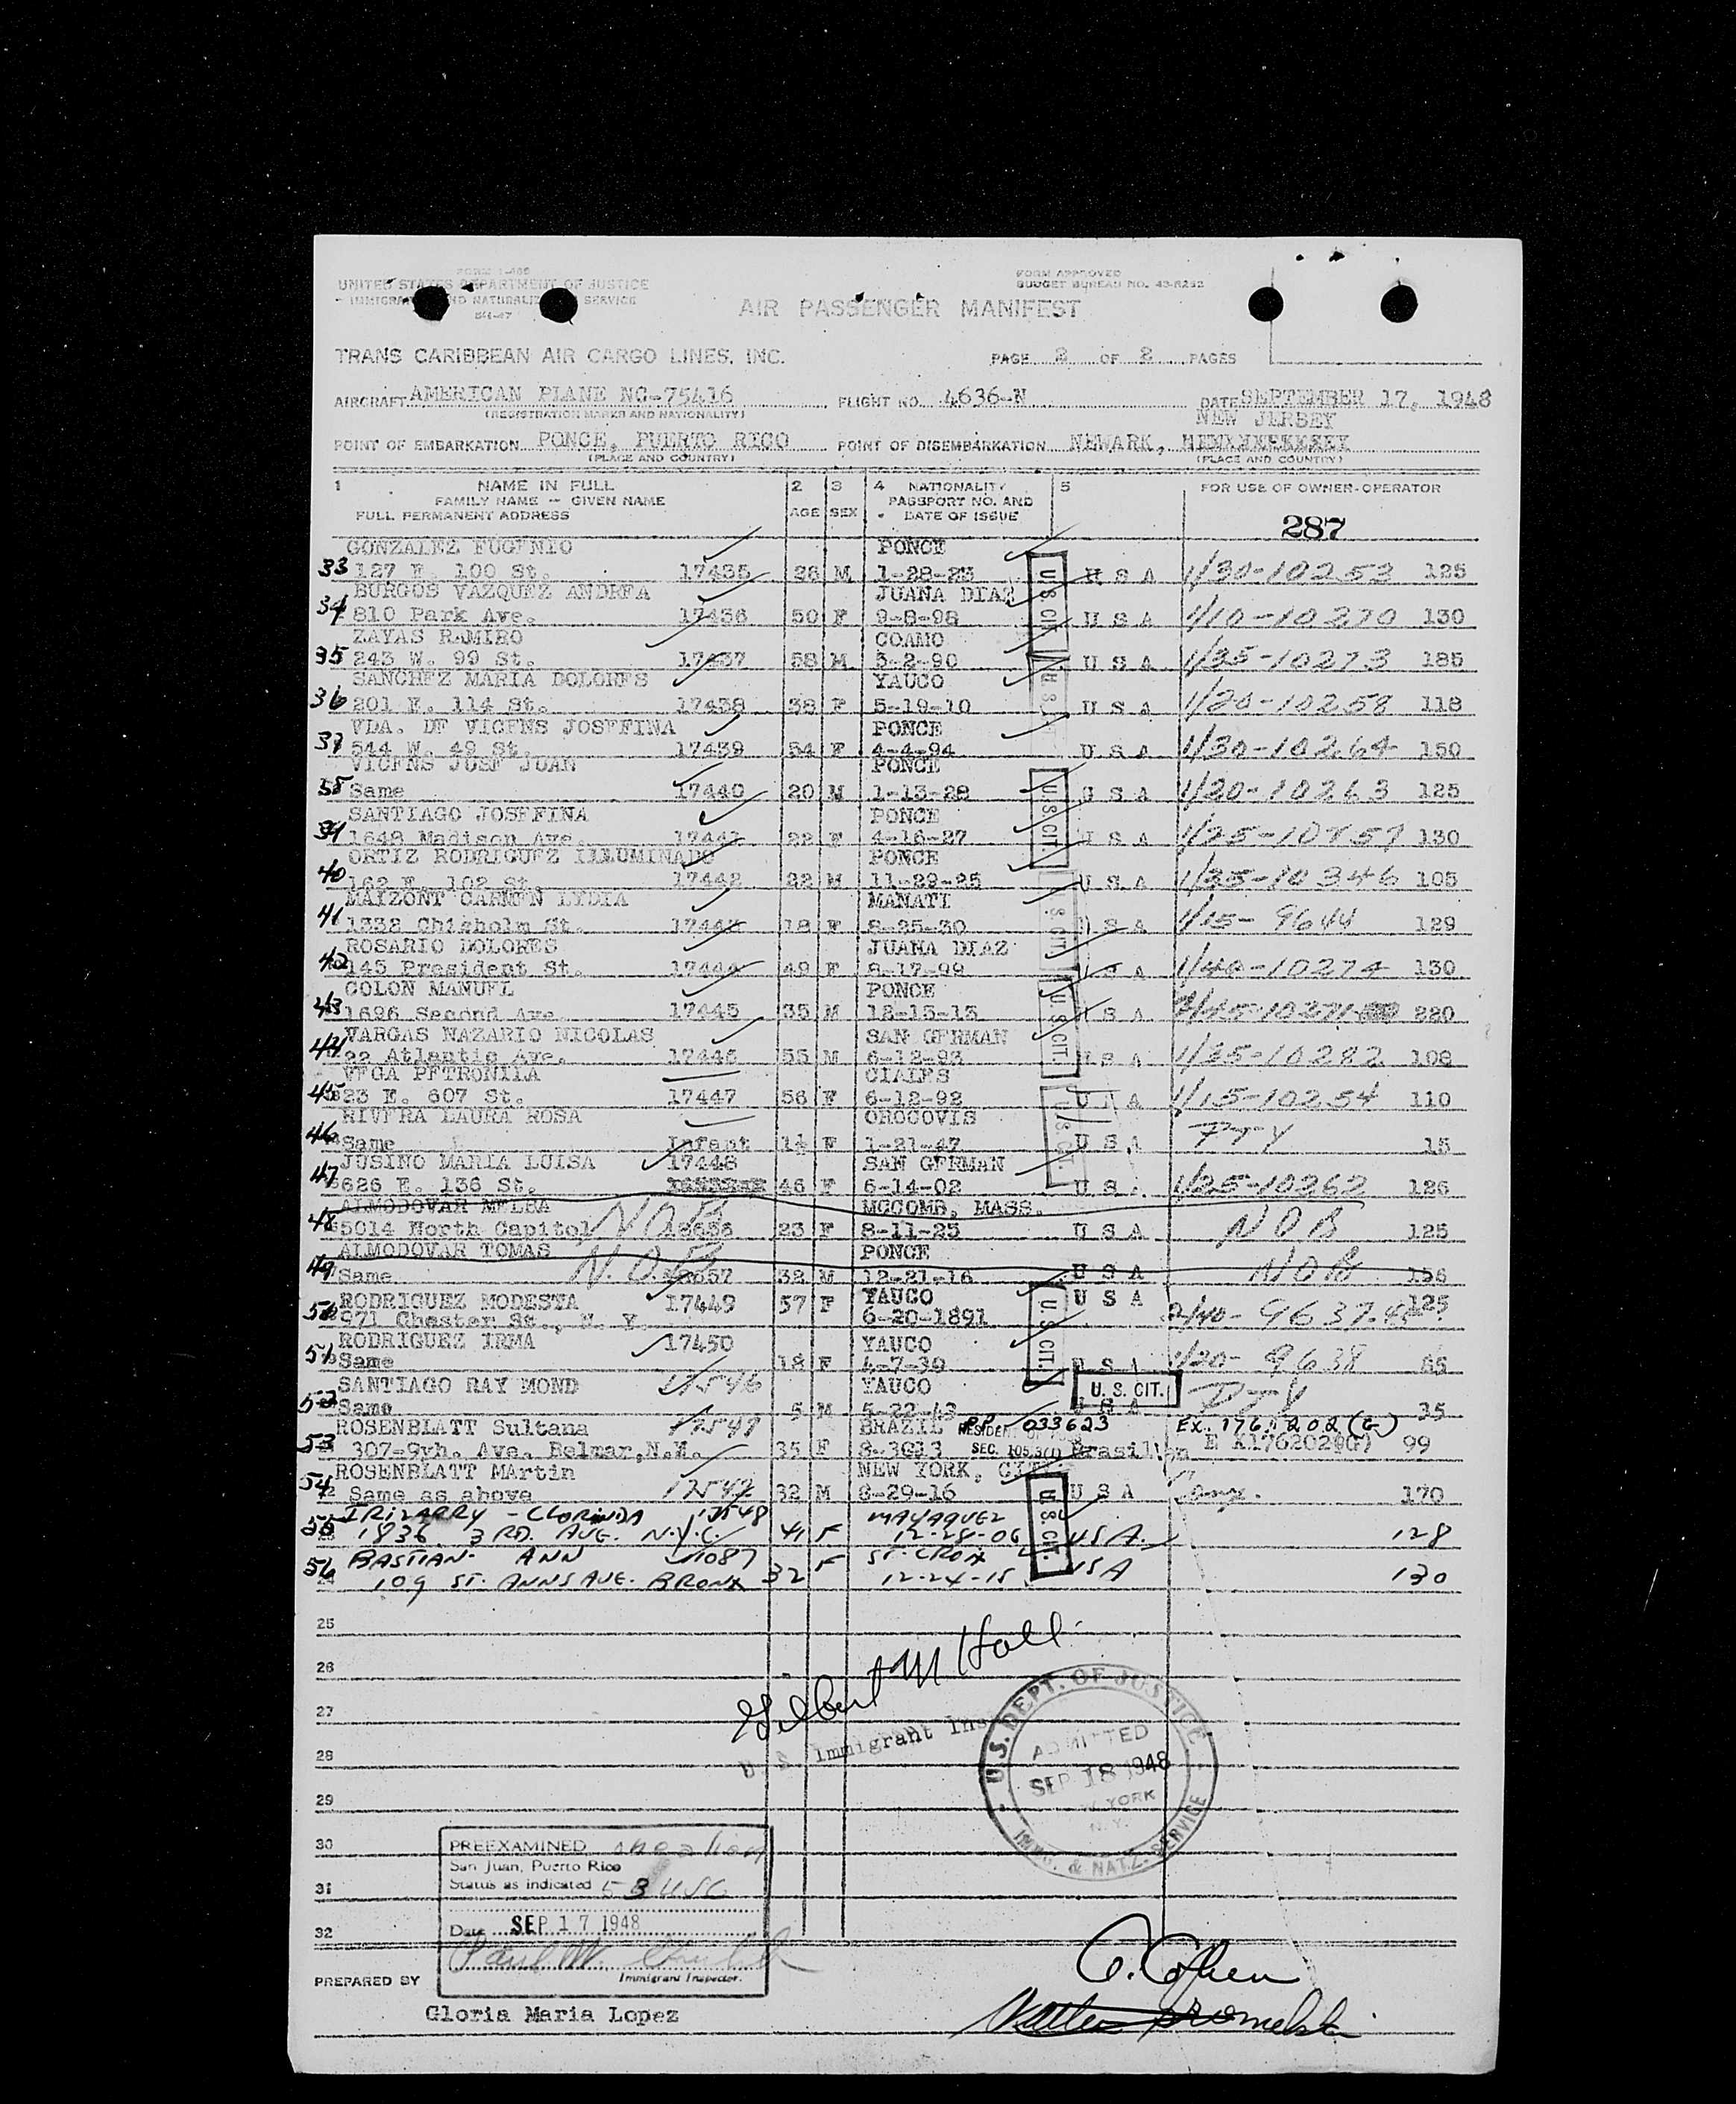 FORM I-466
UNITED STATES DEPARTMENT OF JUSTICE
IMMIGRATION AND NATURALIZATION SERVICE
FORM APPROVED
BUDGET BUREAU NO. 43-R282
AIR PASSENGER MANIFEST
TRANS CARIBBEAN AIR CARGO LINES, INC.
PAGE 2 OF 2 PAGES
AIRCRAFT AMERICAN PLANE NC-75416 FLIGHT NO. 4636-N DATE SEPTEMBER 17, 1948
(REGISTRATION MARKS AND NATIONALITY)
NEW JERSEY
POINT OF EMBARKATION PONCE, PUERTO RICO POINT OF DISEMBARKATION NEWARK,
(PLACE AND COUNTRY) (PLACE AND COUNTRY)
1 NAME IN FULL 2 3 4 NATIONALITY 5 FOR USE OF OWNER-OPERATOR
FAMILY NAME — GIVEN NAME PASSPORT NO. AND
FULL PERMANENT ADDRESS AGE SEX DATE OF ISSUE
287
GONZALEZ EUGENIO PONCE
33 127 E. 100 St. 17435 26 M 1-28-23 U S A 1/30-10253 125
BURGOS VAZQUEZ ANDREA JUANA DIAZ
34 810 Park Ave. 17436 50 F 9-8-98 U S A 1/10-10270 130
ZAYAS RAMIRO COAMO
35 243 W. 99 St. 17437 58 M 3-2-90 U S A 1/35-10273 185
SANCHEZ MARIA DOLORES YAUCO
36 201 E. 114 St. 17438 38 F 5-19-10 U S A 1/20-10258 118
VDA. DE VICENS JOSEFINA PONCE
37 544 W. 49 St. 17439 54 F 4-4-94 U S A 1/30-10264 150
VICENS JOSE JUAN PONCE
38 Same 17440 20 M 1-13-28 U S A 1/20-10263 125
SANTIAGO JOSEFINA PONCE
39 1648 Madison Ave. 17441 22 F 4-16-27 U S A 1/25-10757 130
ORTIZ RODRIGUEZ ILLUMINADO PONCE
40 162 E. 102 St. 17442 22 M 11-29-25 U S A 1/35-10346 105
MAIZONT CARMEN LYDIA MANATI
41 1332 Chisholm St. 1744 18 F 8-25-30 U S A 1/15-9644 129
ROSARIO DOLORES JUANA DIAZ
42 145 President St. 17444 49 F 8-17-99 U S A 1/40-10274 130
COLON MANUEL PONCE
43 1626 Second Ave. 17445 35 M 12-15-13 U S A 10271 220
VARGAS NAZARIO NICOLAS SAN GERMAN
44 92 Atlantic Ave. 17446 55 M 6-12-93 U S A 1/35-10282 108
VEGA PETRONILA CIALES
45 23 E. 607 St. 17447 56 F 6-12-92 U S A 1/15-10254 110
RIVERA LAURA ROSA OROCOVIS
46 Same Infant 1½ F 1-21-47 U S A PTY 15
JUSINO MARIA LUISA 17448 SAN GERMAN
47 626 E. 136 St. 46 F 6-14-02 U S A 1/25-10262 126
ALMODOVAR MELBA NOB MCCOMB, MASS.
48 5014 North Capitol 23 F 8-11-25 U S A NOB 125
ALMODOVAR TOMAS N.O.B PONCE
49 Same 32 M 12-21-16 U S A NOB 156
RODRIGUEZ MODESTA 17449 57 F YAUCO U S A 125
50 971 Chester St., N. Y. 6-20-1891 2/40-9637
RODRIGUEZ IRMA 17450 YAUCO
51 Same 18 F 4-7-30 U S A 1/20-9638
SANTIAGO RAY MOND 17546 YAUCO U. S. CIT. PTY
52 Same 5 M 5-22-43 U S A 35
ROSENBLATT Sultana BRAZIL PP 033623 Ex. 176 202(G)
53 307-9yh. Ave. Belmar,N.J. 35 F SEC. 105.3(1) Brasilian 99
ROSENBLATT MArtin NEW YORK, CITY
54 Same as above 32 M 8-29-16 U S A 170
55 IRIZARRY - CLORINDA 17548 MAYAGUEZ
1836 3 RD. AVE. N.Y.C. 41 F 12-28-06 USA 128
56 BASTIAN- ANN 1087 ST. CROIX
109 ST. ANNS AVE. BRONX 32 F 12-24-15 USA 130
U. S. CIT.
25
26
27
28
29
30
31
32
Gilbert M Hall
U S Immigrant Ins
U.S. DEPT. OF JUSTICE
ADMITTED
SEP 18 1948
NEW YORK
N.Y.
IMMG. & NATZ. SERVICE
PREEXAMINED
San Juan, Puerto Rico
Status as indicated 53 USC
Date SEP 17 1948
Immigrant Inspector.
PREPARED BY
Gloria Maria Lopez